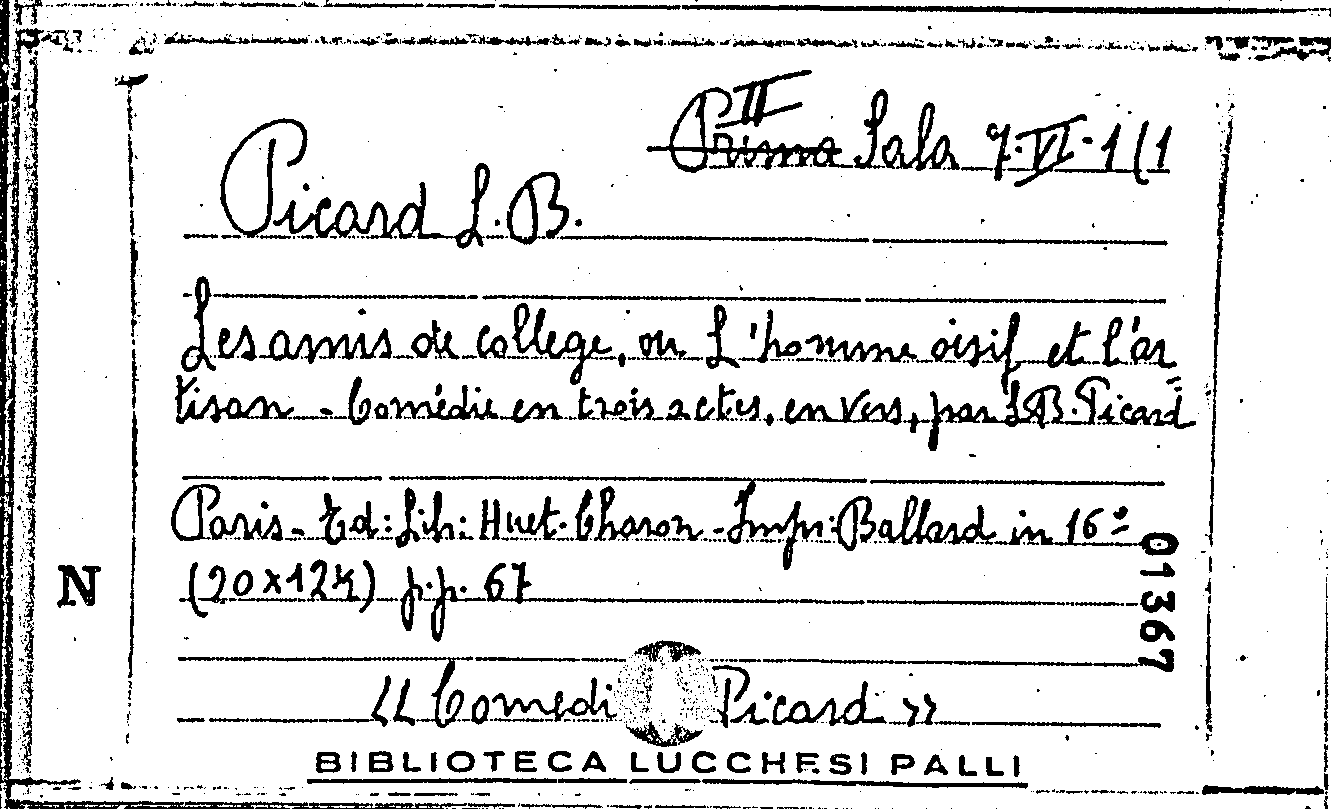 II
Prima Sala 7.VI-1(1
Picard L.B.
Les amis de college, ou L'homme oisif et l'ar
tisan - Comédie en trois actes, en vers, par L.B. Picard
Paris - Ed: Lib: Huet-Charon - Impr: Ballard in 16º
(20x12½) p.p. 67
01367
N
« Comedi Picard »
BIBLIOTECA LUCCHESI PALLI